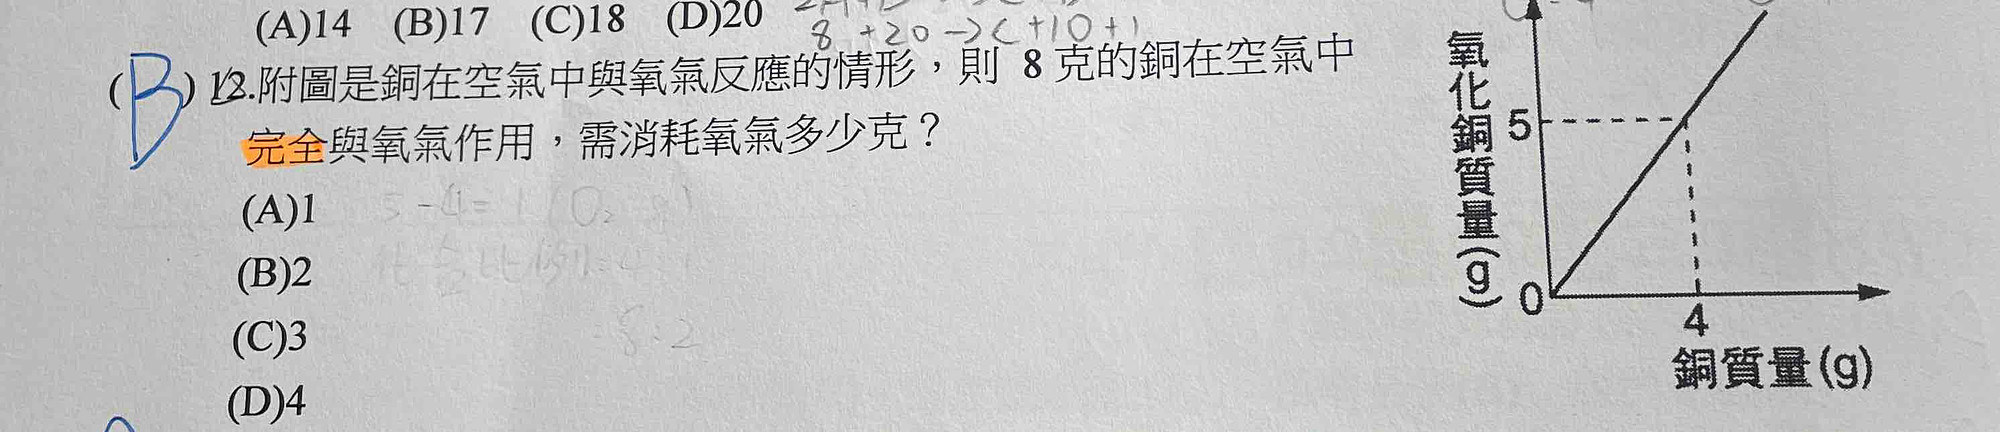 (A)14 (B)17 (C)18 (D)20
8 +20→2C+10+1
(B) 12.附圖是銅在空氣中與氧氣反應的情形，則 8 克的銅在空氣中
完全與氧氣作用，需消耗氧氣多少克？
(A)1
5-4=1(O₂
(B)2
化合比例=4:1
(C)3
=8:2
(D)4
氧化銅質量(g)
5
0
4
銅質量(g)